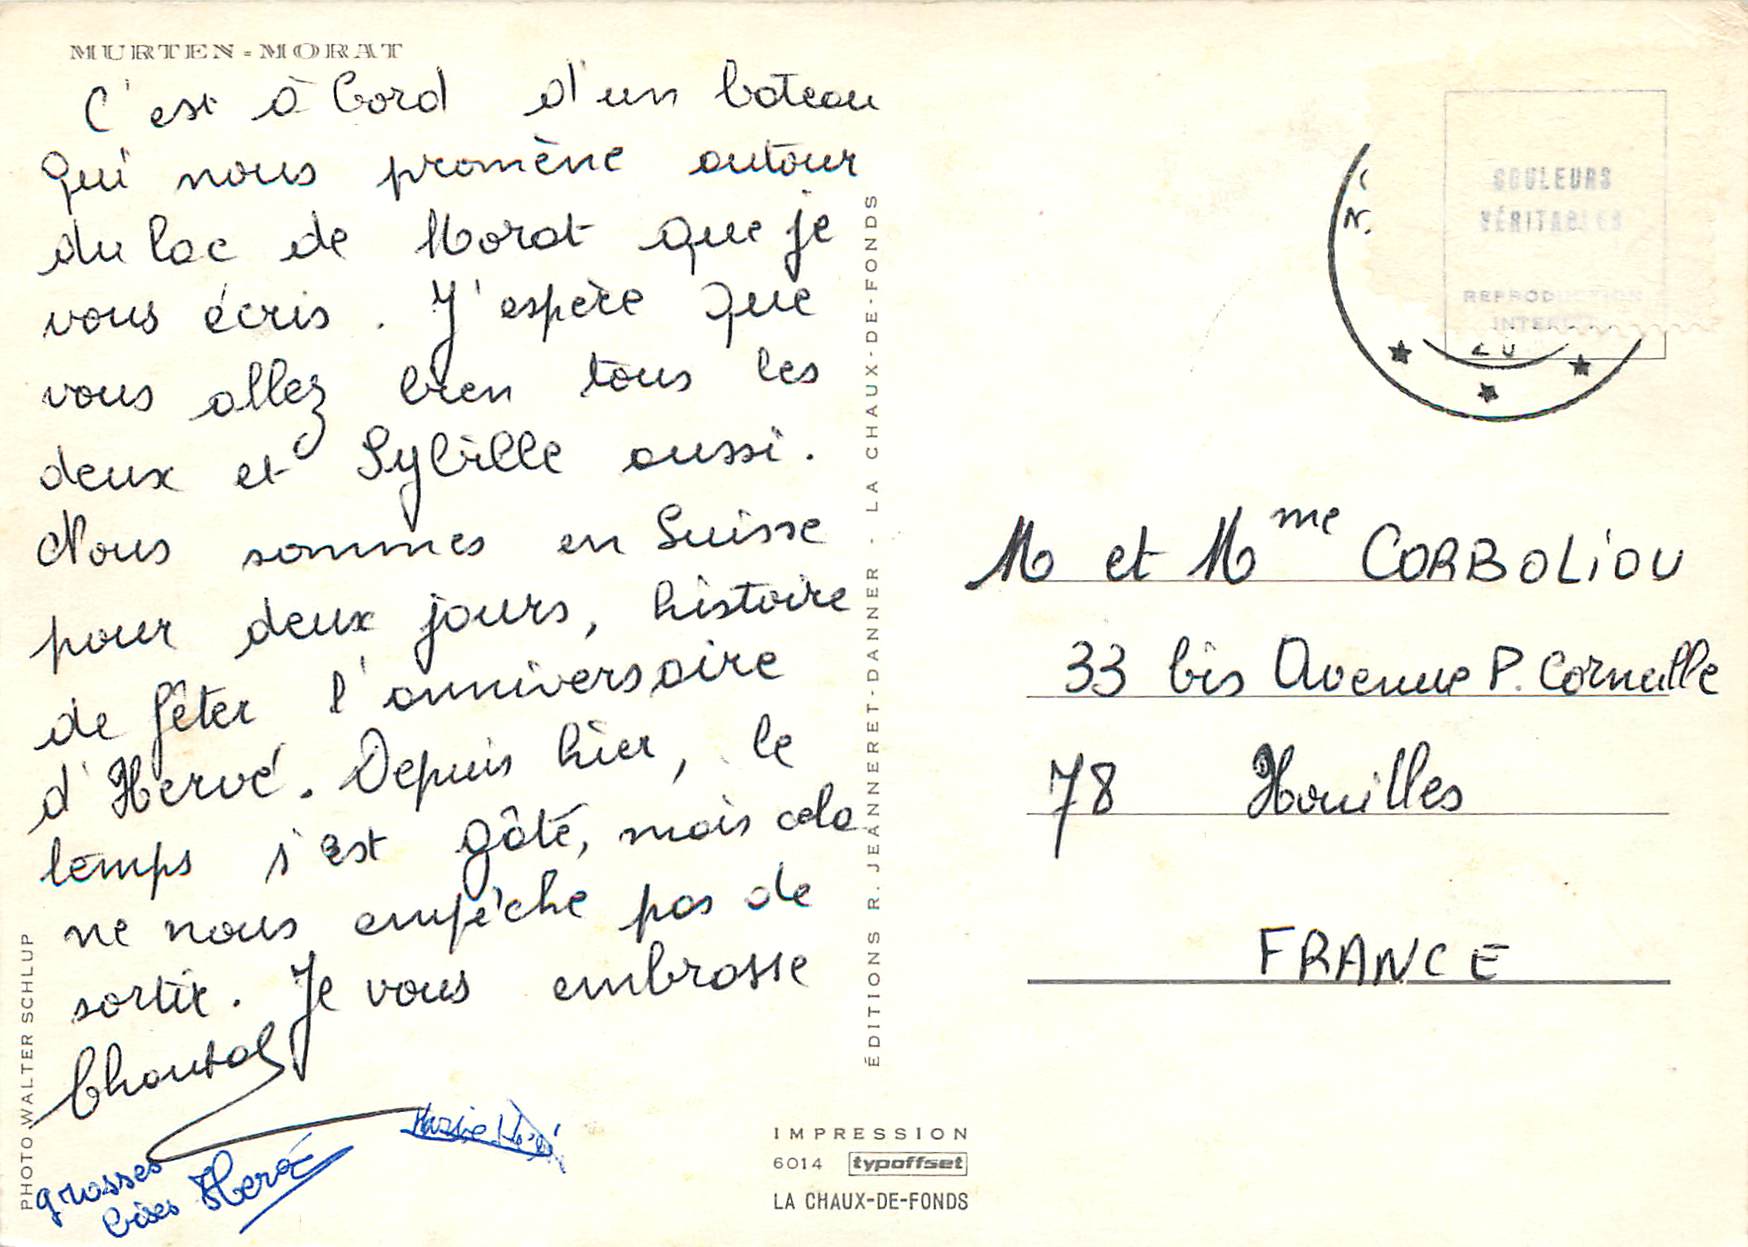 MURTEN-MORAT
C'est à bord d'un bateau
qui nous promène autour
du lac de Morat que je
vous écris. J'espère que
vous allez bien tous les
deux et Sybille aussi.
Nous sommes en Suisse
pour deux jours, histoire
de fêter l'anniversaire
d'Hervé. Depuis hier, le
temps s'est gâté, mais cela
ne nous empêche pas de
sortir. Je vous embrasse
Chantal
grosses
bises Hervé
PHOTO WALTER SCHLUP
ÉDITIONS R. JEANNERET-DANNER - LA CHAUX-DE-FONDS
IMPRESSION
6014 typoffset
LA CHAUX-DE-FONDS
COULEURS
VÉRITABLES
REPRODUCTION
M et Mme CORBOLIOU
33 bis Avenue P. Corneille
78 Houilles
FRANCE